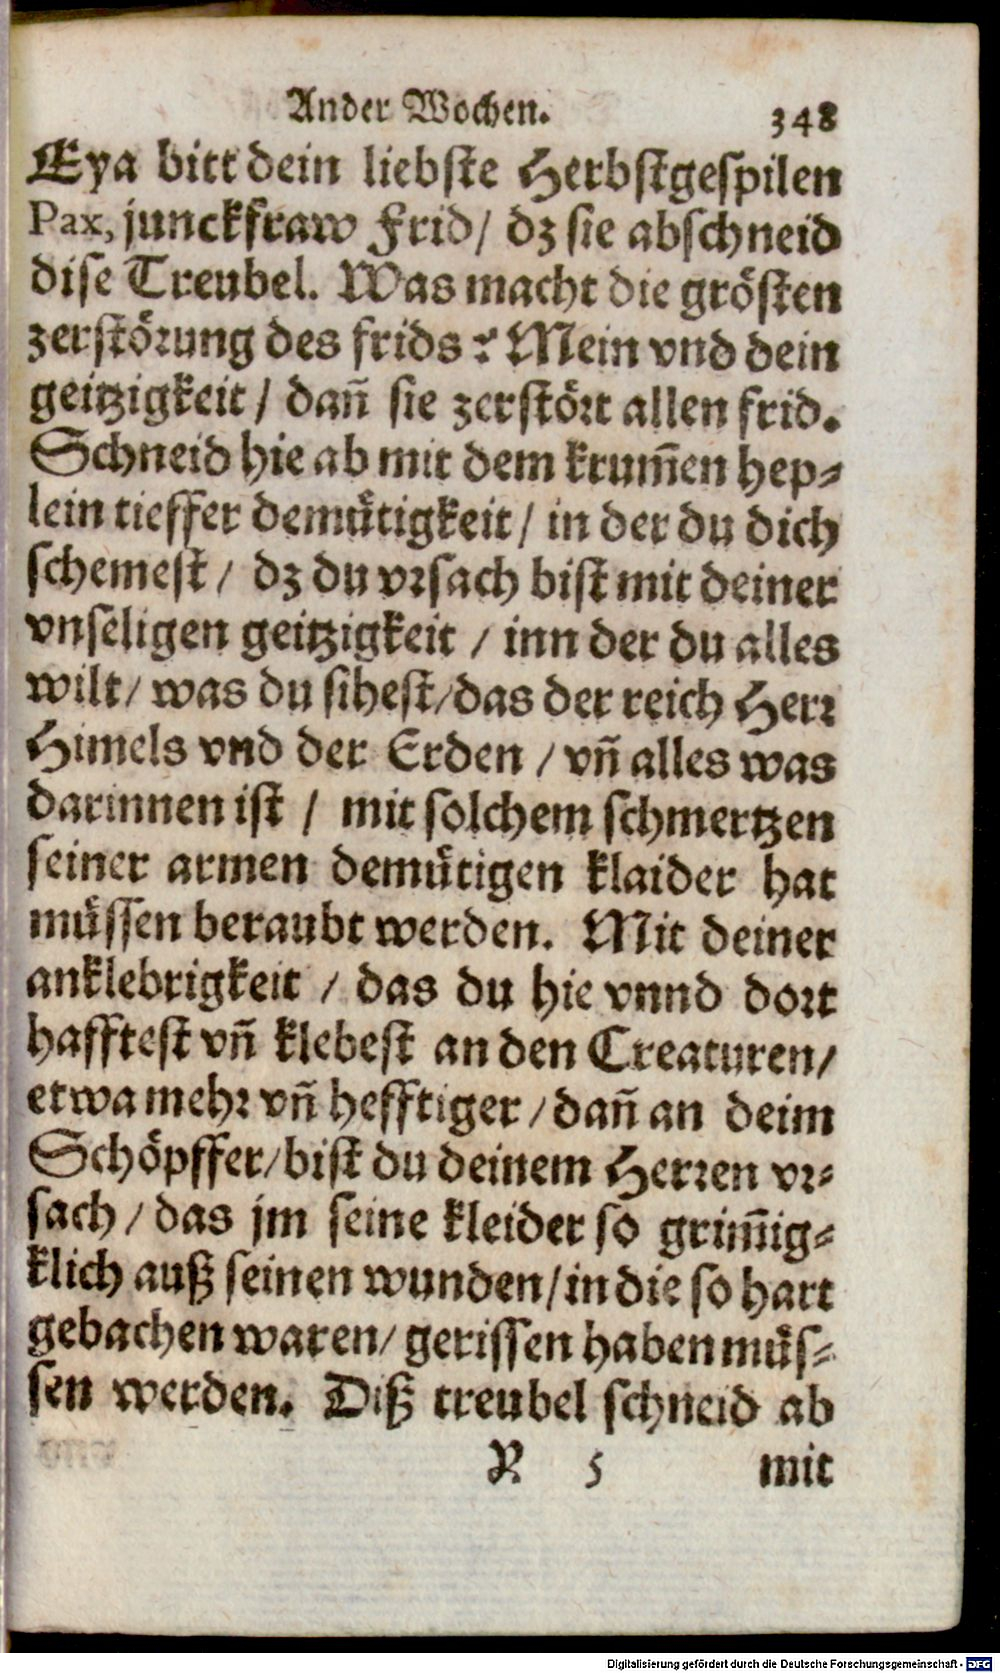 Ander Wochen.
348
Eya bitt dein liebste Herbstgespilen
Pax, junckfraw Frid/ dz sie abschneid
dise Treubel. Was macht die grösten
zerstörung des frids? Mein vnd dein
geitzigkeit/ dañ sie zerstört allen frid.
Schneid hie ab mit dem krum̃en hep-
lein tieffer demütigkeit/ in der du dich
schemest/ dz du vrsach bist mit deiner
vnseligen geitzigkeit/ inn der du alles
wilt/ was du sihest/ das der reich Herr
Himels vnd der Erden/ vñ alles was
darinnen ist/ mit solchem schmertzen
seiner armen demütigen klaider hat
müssen beraubt werden. Mit deiner
anklebrigkeit/ das du hie vnnd dort
hafftest vñ klebest an den Creaturen/
etwa mehr vñ hefftiger/ dañ an deim
Schöpffer/ bist du deinem Herren vr-
sach/ das jm seine kleider so grim̃ig-
klich auß seinen wunden/ in die so hart
gebachen waren/ gerissen haben müs-
sen werden. Diß treubel schneid ab
R 5 mit
Digitalisierung gefördert durch die Deutsche Forschungsgemeinschaft - DFG